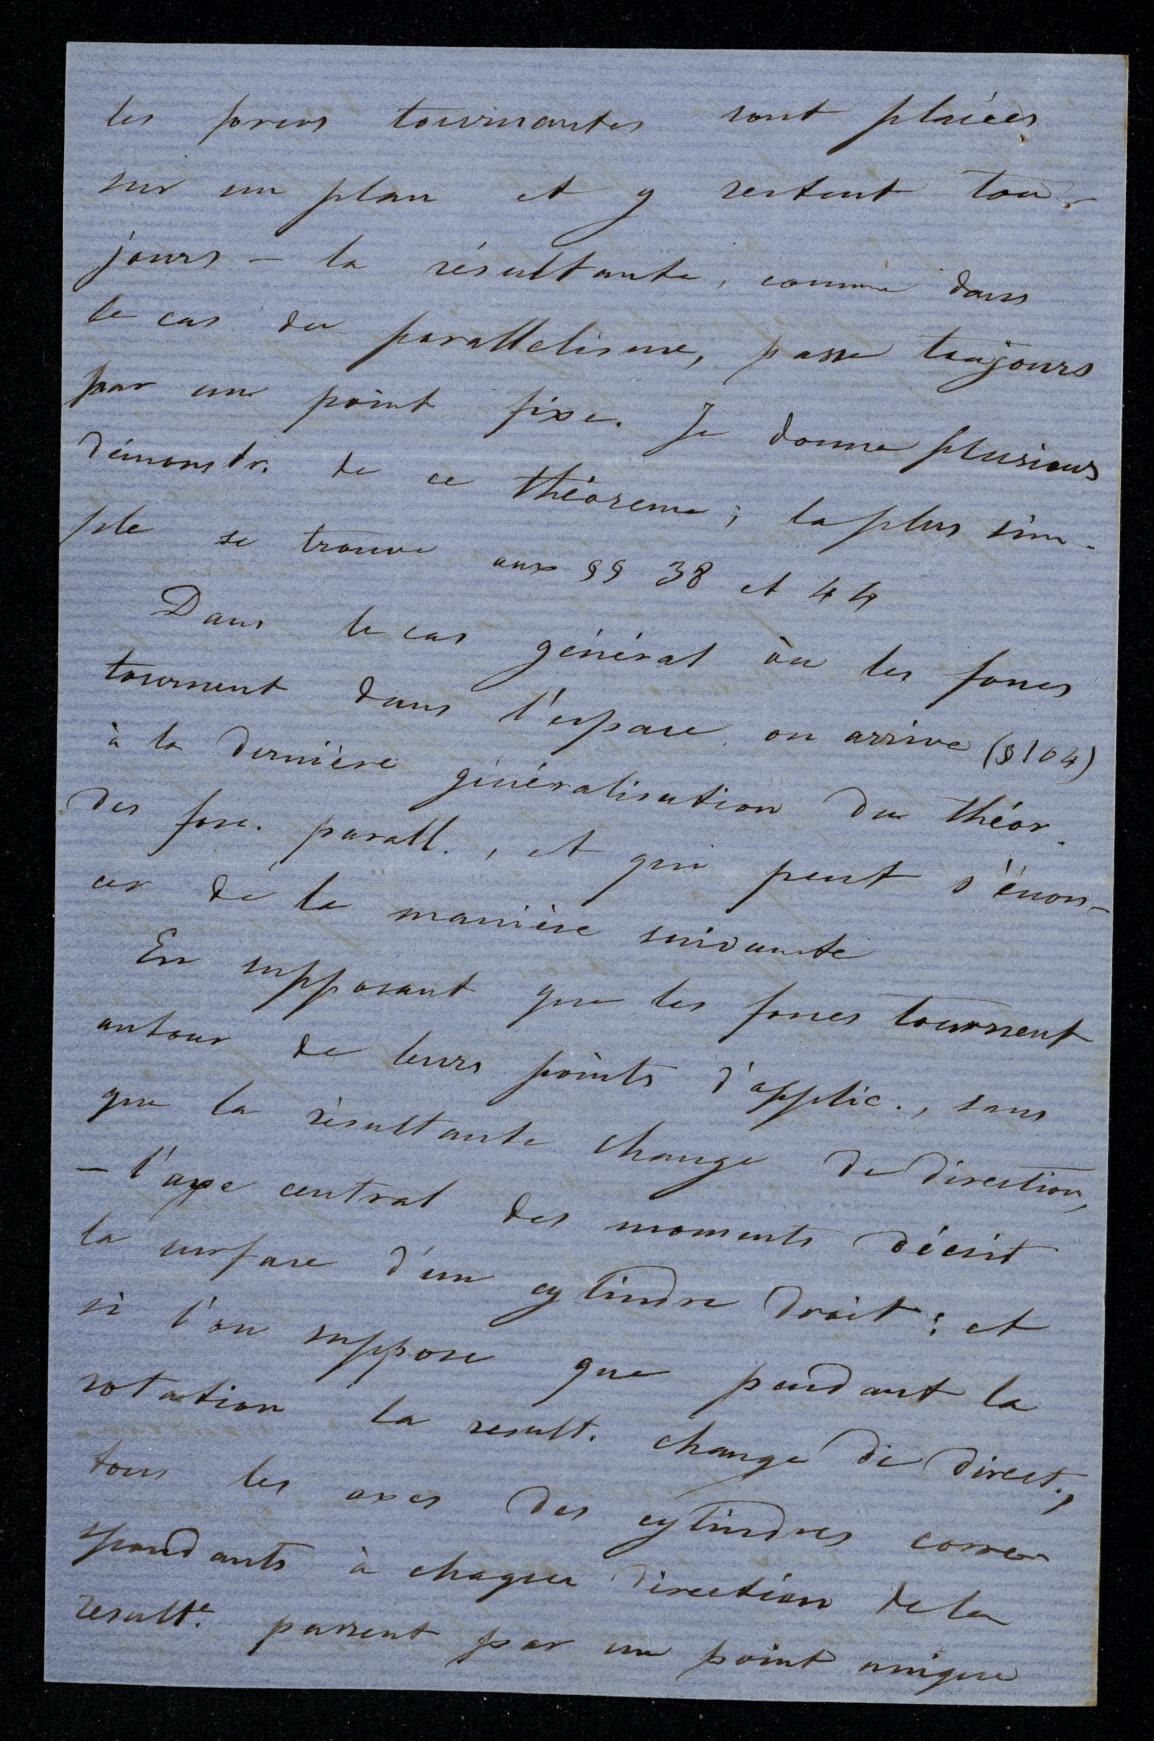 les forces tournantes sont placées
sur un plan et y restent tou-
jours – la résultante, comme dans
le cas du parallelisme, passe toujours
par un point fixe. Je donne plusieurs
démonstr. de ce théoreme; la plus sim-
ple se trouve aux §§ 38 et 44
Dans le cas général òu les forces
tournent dans l'espace on arrive (§104)
à la dernière généralisation du théor.
des forc. parall., et qui peut s'énon-
cer de la manière suivante
En supposant que les forces tournent
autour de leurs points d'applic., sans
que la résultante change de direction,
– l'axe central des moments décrit
la surface d'un cylindre droit; et
si l'on suppose que pendant la
rotation la result. change de direct.,
tous les axes des cylindres corre-
spondants à chaque direction de la
resulte. passent par un point unique